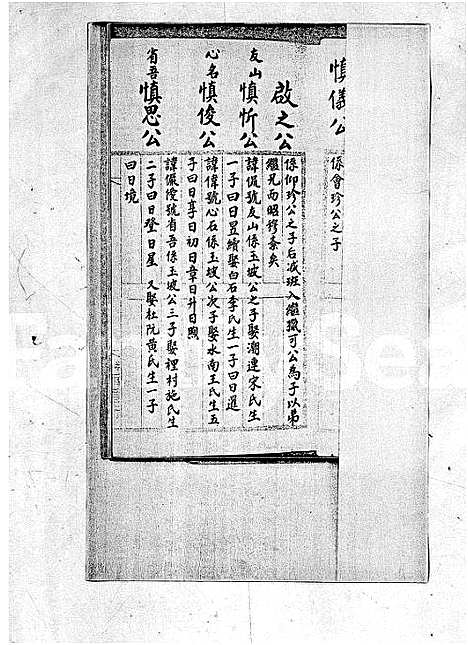 慎儀公
係會珍公之子
啟之公
係仰珍公之子后减班入繼獵可公為子以弟
繼兄而昭穆紊矣
友山 慎忻公
諱侃號友山係玉坡公之子娶潮連宋氏生
一子曰日昱續娶白石李氏生一子曰日暹
心名 慎俊公
諱偉號心石係玉坡公次子娶水南王氏生五
子曰日享日初日章日升日照
省吾 慎思公
諱儼號省吾係玉坡公三子娶裡村施氏生
二子曰日登日星 又娶杜阮黃氏生一子
曰日境